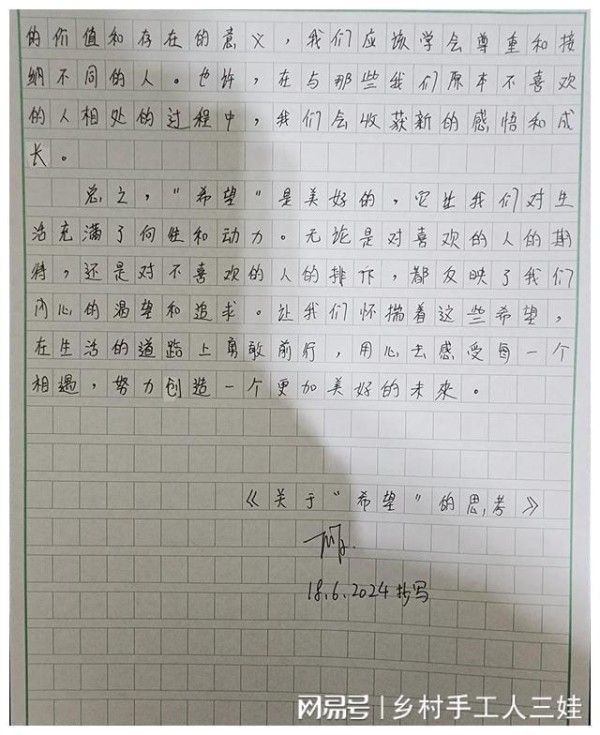 的价值和存在的意义，我们应该学会尊重和接
纳不同的人。也许，在与那些我们原本不喜欢
的人相处的过程中，我们会收获新的感悟和成
长。
总之，"希望"是美好的，它让我们对生
活充满了向往和动力。无论是对喜欢的人的期
待，还是对不喜欢的人的排斥，都反映了我们
内心的渴望和追求。让我们怀揣着这些希望，
在生活的道路上勇敢前行，用心去感受每一个
相遇，努力创造一个更加美好的未来。
《关于"希望"的思考》
18.6.2024抄写
网易号 | 乡村手工人三娃